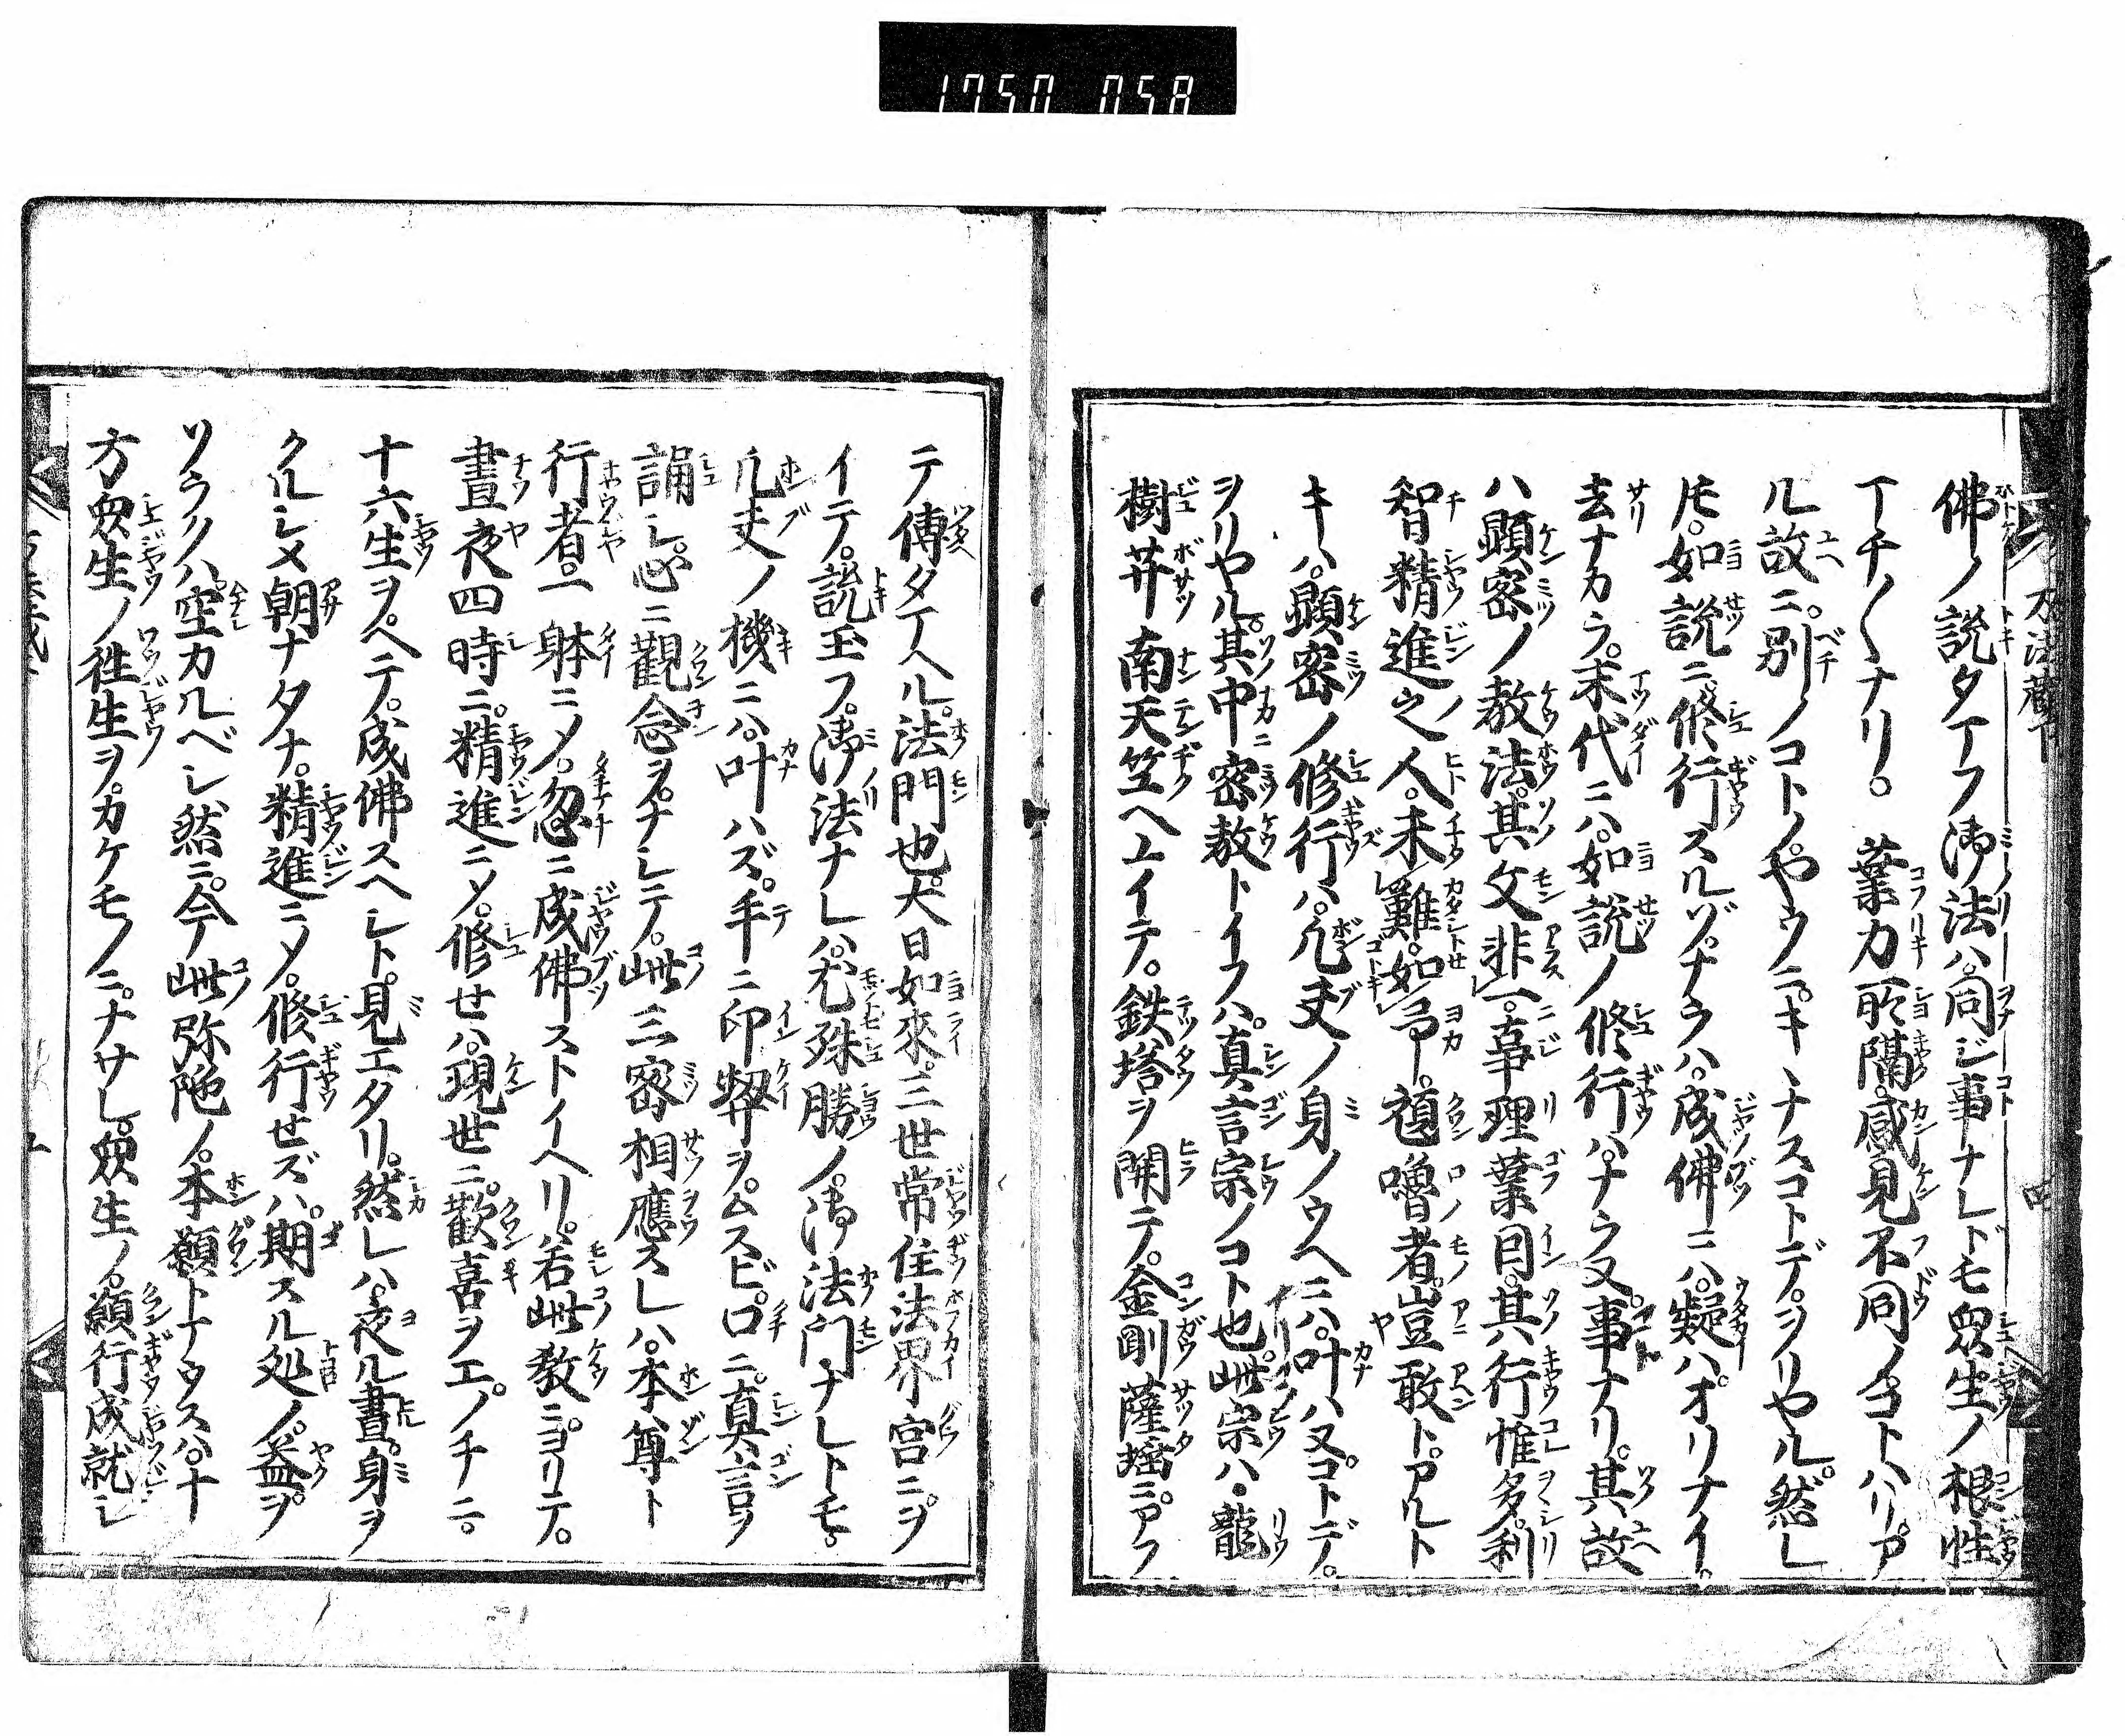 1750 058
佛ノ説タマフ御法ハ。同ジ事ナレドモ衆生ノ根性
マチ〱ナリ。業力所隔。感見不同ノコトハリ。ア
ル故ニ。別ノコトノヤウニ。キヽナスコトデ。ヲリヤル。然レ
𪜈。如説ニ。修行スルゾ。ナラハ。成佛ニハ。疑ハ。オリナイ。
去ナカラ。末代ニハ。如説ノ修行ハ。ナラヌ事ナリ。其故
ハ顕密ノ教法。其文非一。事理業因。其行惟多。利
智精進之人。未難。如予。頑嚕者。豈敢ト。アルト
キハ。顕密ノ修行ハ。凡夫ノ身ノウヘニハ。叶ハヌコトデ。
ヲリヤル。其中密教トイフハ。真言宗ノコト也。此宗ハ。龍
樹菩薩南天竺ヘユイテ。鉄塔ヲ開テ。金剛薩埵ニ。アフ
テ傳タマヘル。法門也。大日如來。三世常住法界宮ニ。ヲ
イテ。説玉フ。御法ナレハ。尤殊勝ノ。御法門ナレトモ。
凡夫ノ機ニハ。叶ハズ。手ニ印契ヲ。ムスビ。口ニ。真言ヲ
誦シ。心ニ觀念ヲ。ナシテ。此三密相應スレハ。本尊ト
行者。一躰ニメ。忽ニ成佛ストイヘリ。若此教ニ。ヨリテ。
晝夜四時ニ。精進ニメ。修セハ。現世ニ。歡喜ヲエ。ノチニ。
十六生ヲ。ヘテ。成佛スヘシト。見エタリ。然レハ。夜ル晝。身ヲ
クルシメ朝ナタナ。精進ニメ。修行セズハ。期スル処ノ。益ヲ。
ソラクハ。空カルベシ然ニ。今此弥陀ノ。本願トナウスハ。十
方衆生ノ徃生ヲ。カケモノニ。ナサレ。衆生ノ。願行成就シ